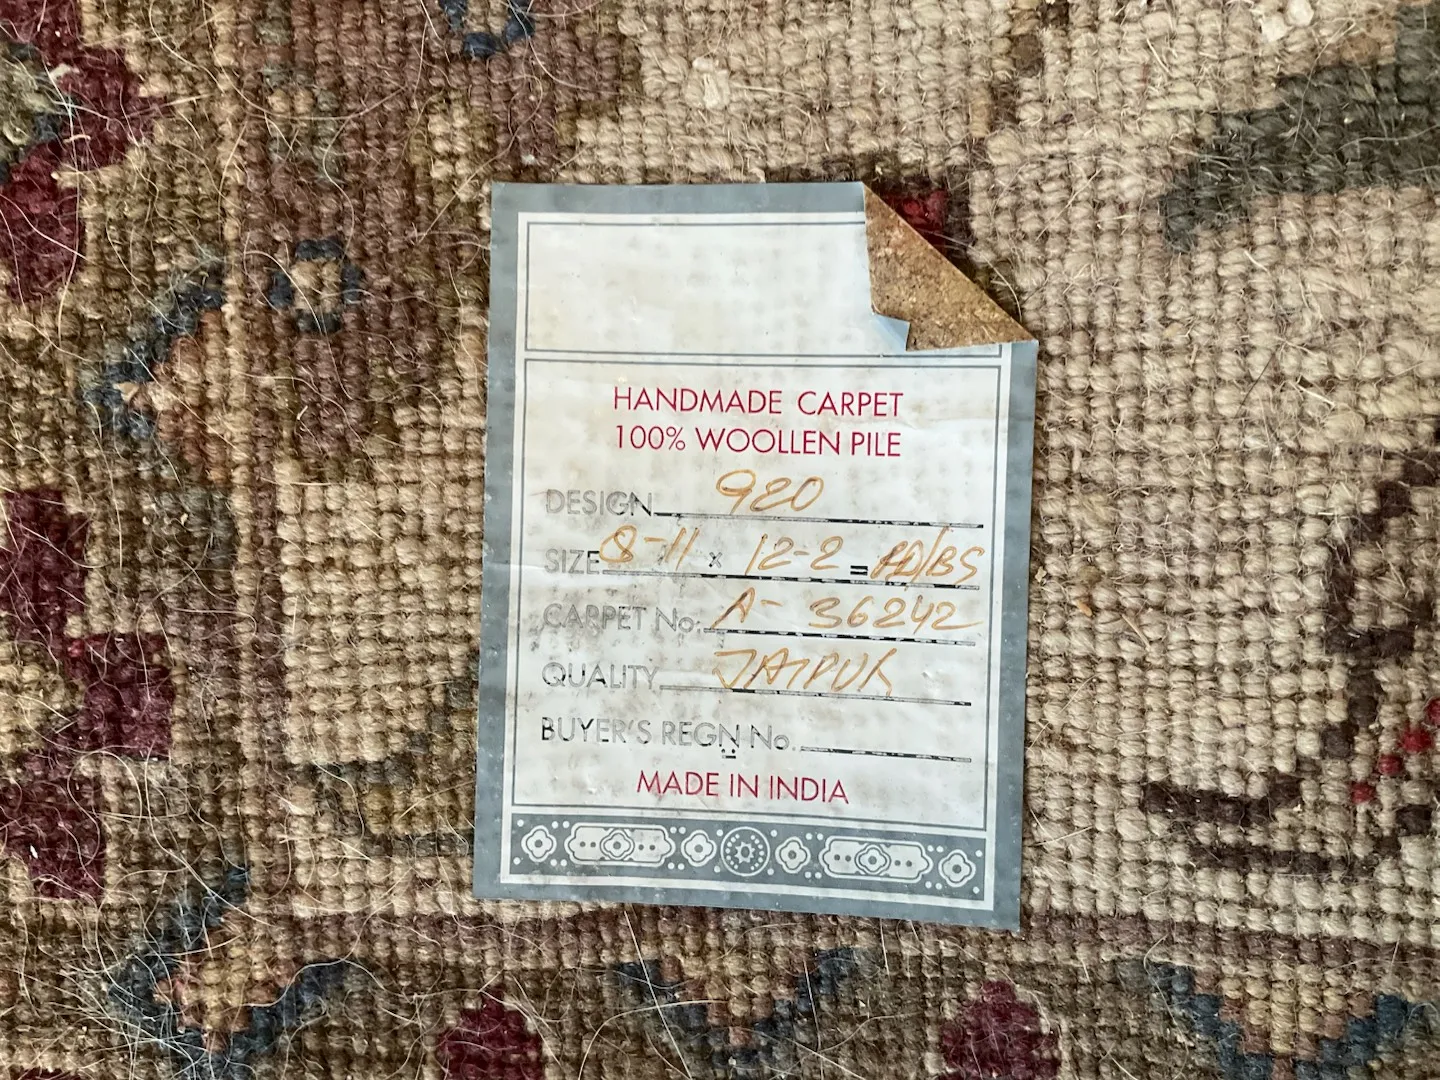 HANDMADE CARPET
100% WOOLLEN PILE
DESIGN 920
SIZE 8-11 x 12-2 =
CARPET No: A- 36242
QUALITY JAIPUR
BUYER'S REGN No.
MADE IN INDIA